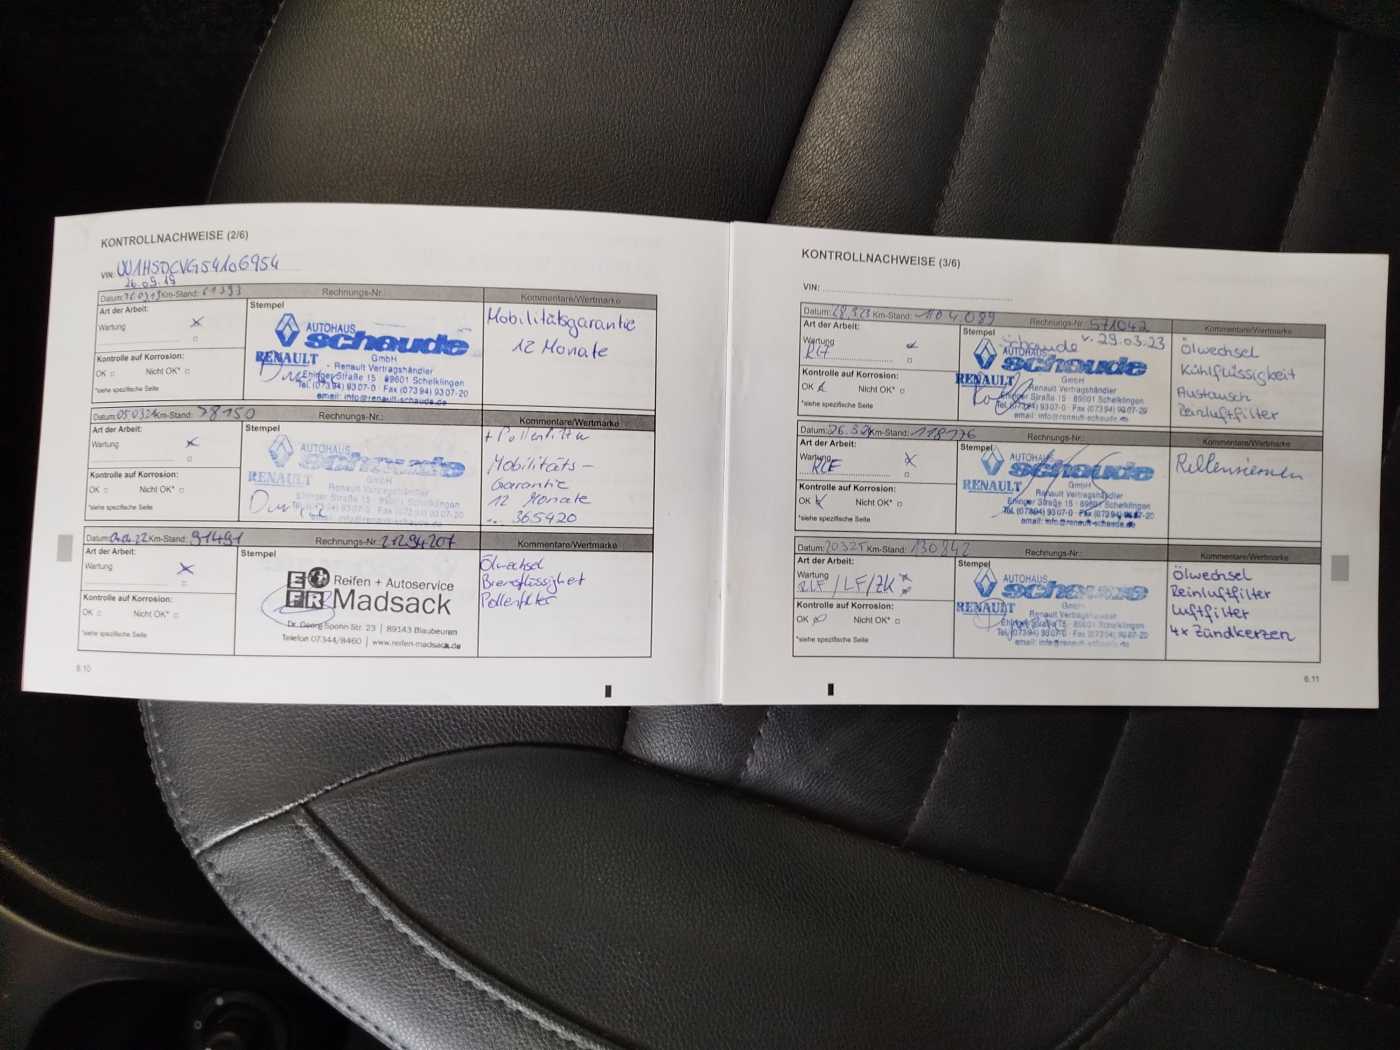 KONTROLLNACHWEISE (2/6)
VIN: UU1HSDCVG54106954
26.09.19
Datum: 26.09.19 Km-Stand: 61393 Rechnungs-Nr.: Kommentare/Wertmarke
Art der Arbeit:
Wartung
Kontrolle auf Korrosion:
OK Nicht OK*
*siehe spezifische Seite
Stempel
AUTOHAUS
schaude
RENAULT GmbH
- Renault Vertragshändler
Ehinger Straße 15 · 89601 Schelklingen
Tel. (07394) 9307-0 · Fax (07394) 9307-20
email: info@renault-schaude.de
Mobilitätsgarantie
12 Monate
Km-Stand: 78150 Rechnungs-Nr.: Kommentare/Wertmarke
Art der Arbeit:
Wartung
Kontrolle auf Korrosion:
OK Nicht OK*
*siehe spezifische Seite
Stempel
AUTOHAUS
schaude
RENAULT GmbH
Renault Vertragshändler
Ehinger Straße 15 · 89601 Schelklingen
Tel. (07394) 9307-0 · Fax (07394) 9307-20
email: info@renault-schaude.de
+ Pollenfilter
Mobilitäts-
Garantie
12 Monate
... 365420
Km-Stand: 91491 Rechnungs-Nr.: 21294207 Kommentare/Wertmarke
Art der Arbeit:
Wartung
Kontrolle auf Korrosion:
OK Nicht OK*
*siehe spezifische Seite
Stempel
EFR Reifen + Autoservice
Madsack
Dr. Georg Spohn Str. 23 | 89143 Blaubeuren
Telefon 07344/8460 | www.reifen-madsack.de
Ölwechsel
Bremsflüssigkeit
Pollenfilter
6.10
KONTROLLNACHWEISE (3/6)
VIN:
Datum: 28.3.23 Km-Stand: 104.089 Rechnungs-Nr.: 571042 Kommentare/Wertmarke
v. 29.03.23
Art der Arbeit:
Wartung
Kontrolle auf Korrosion:
OK Nicht OK*
*siehe spezifische Seite
Stempel
Schaude
AUTOHAUS
schaude
RENAULT GmbH
Renault Vertragshändler
Ehinger Straße 15 · 89601 Schelklingen
Tel. (07394) 9307-0 · Fax (07394) 9307-20
email: info@renault-schaude.de
Ölwechsel
Kühlflüssigkeit
Austausch
Reinluftfilter
Datum: 26.3.24 Km-Stand: 118176 Rechnungs-Nr.: Kommentare/Wertmarke
Art der Arbeit:
Wartung
RLF
Kontrolle auf Korrosion:
OK Nicht OK*
*siehe spezifische Seite
Stempel
AUTOHAUS
schaude
RENAULT GmbH
Renault Vertragshändler
Ehinger Straße 15 · 89601 Schelklingen
Tel. (07394) 9307-0 · Fax (07394) 9307-20
email: info@renault-schaude.de
Rillenriemen
Datum: 20325 Km-Stand: 130842 Rechnungs-Nr.: Kommentare/Wertmarke
Art der Arbeit:
Wartung
RLF/LF/ZK
Kontrolle auf Korrosion:
OK Nicht OK*
*siehe spezifische Seite
Stempel
AUTOHAUS
schaude
RENAULT GmbH
Renault Vertragshändler
Ehinger Straße 15 · 89601 Schelklingen
Tel. (07394) 9307-0 · Fax (07394) 9307-20
email: info@renault-schaude.de
Ölwechsel
Reinluftfilter
Luftfilter
4x Zündkerzen
6.11